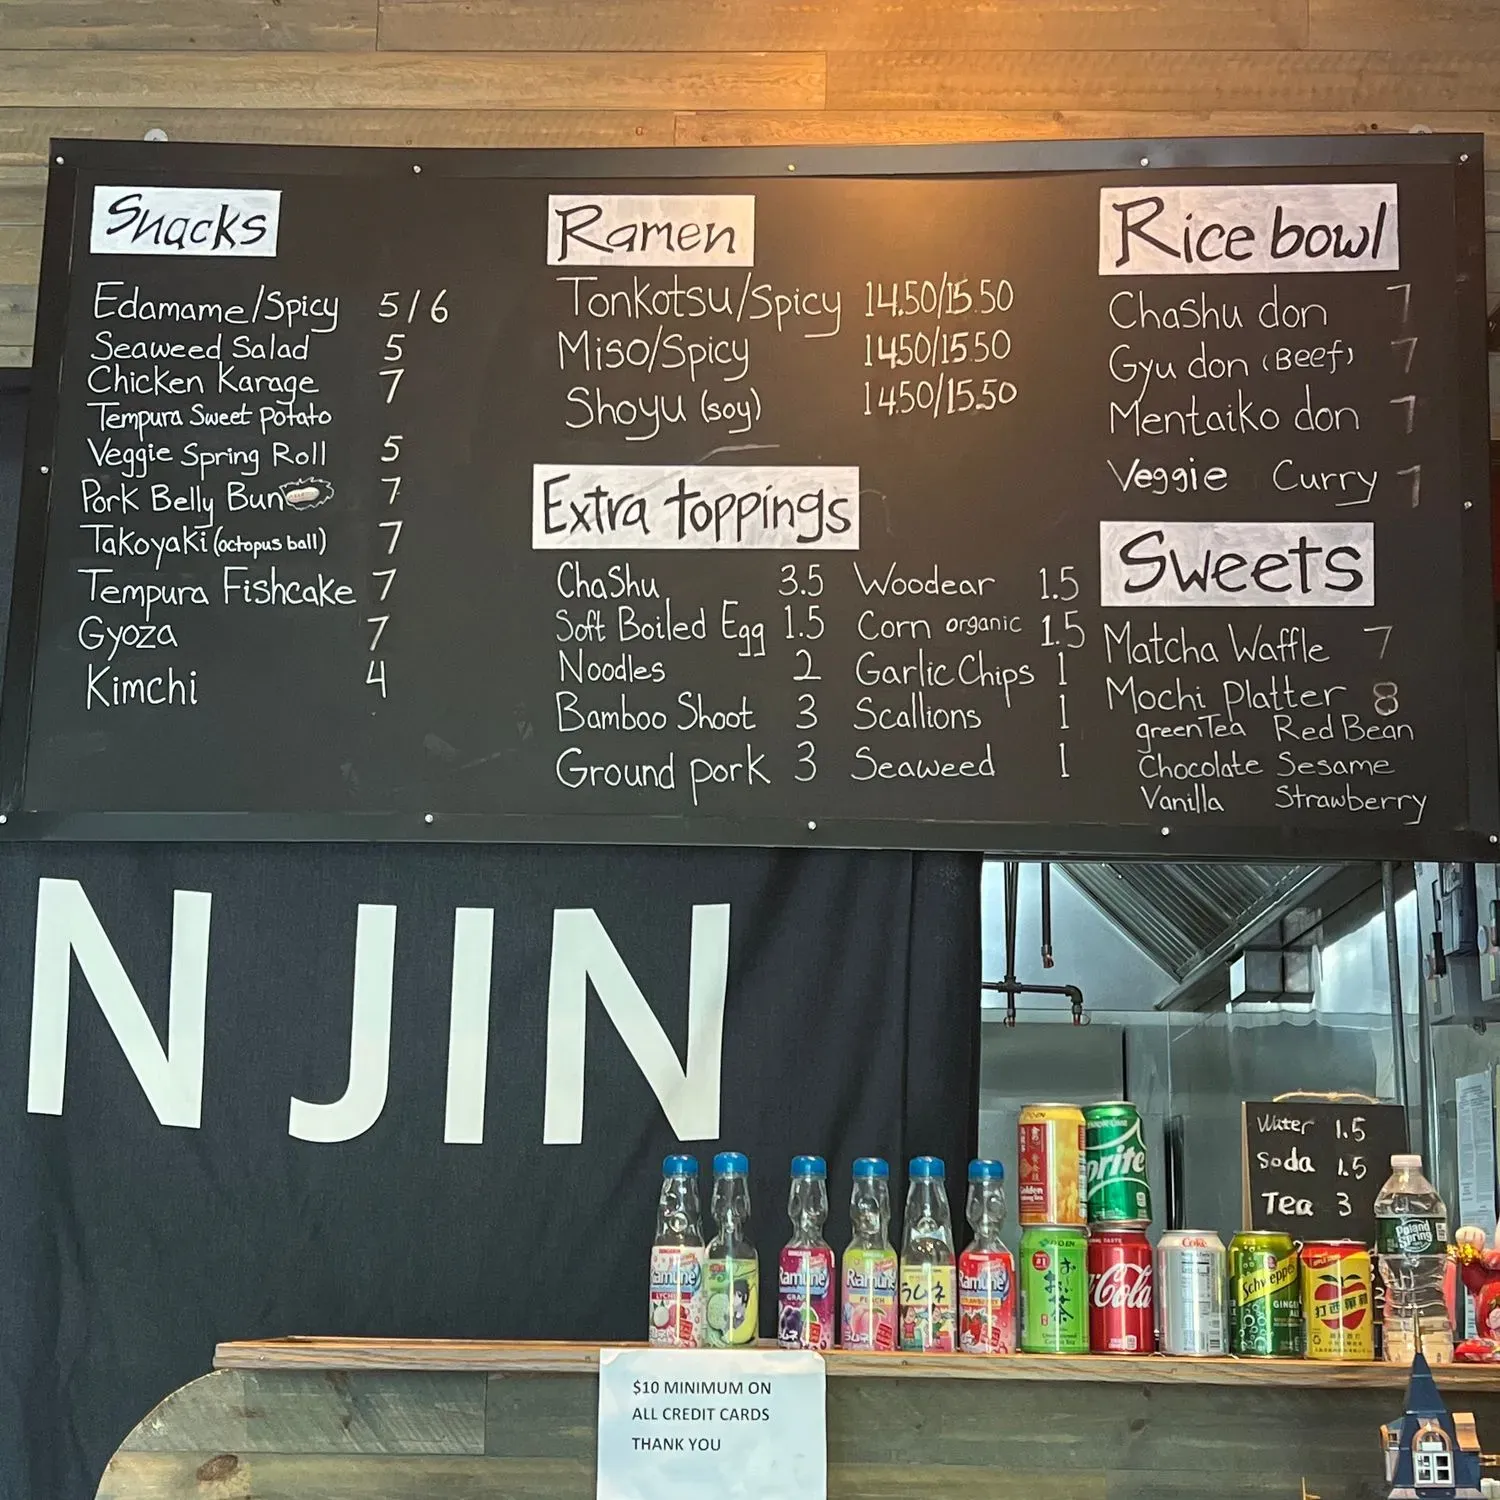 Snacks
Edamame/Spicy 5/6
Seaweed Salad 5
Chicken Karage 7
Tempura Sweet Potato
Veggie Spring Roll 5
Pork Belly Bun 7
Takoyaki (octopus ball) 7
Tempura Fishcake 7
Gyoza 7
Kimchi 4
Ramen
Tonkotsu/Spicy 14.50/15.50
Miso/Spicy 1450/15.50
Shoyu (soy) 1450/15.50
Extra toppings
Chashu 3.5
Soft Boiled Egg 1.5
Noodles 2
Bamboo Shoot 3
Ground pork 3
Woodear 1.5
Corn organic 1.5
Garlic Chips 1
Scallions 1
Seaweed 1
Rice bowl
Chashu don 7
Gyu don (Beef) 7
Mentaiko don 7
Veggie Curry 7
Sweets
Matcha Waffle 7
Mochi Platter 8
greenTea Red Bean
Chocolate Sesame
Vanilla Strawberry
N JIN
Water 1.5
Soda 1.5
Tea 3
Golden
Sprite
Ramune
LYCHEE
Ramune
GRAPE
ラムネ
Ramune
PEACH
ラムネ
ラムネ
Ramune
STRAWBERRY
お〜い
お茶
Coca-Cola
Coke
Schweppes
GINGER
ALE
Poland
Spring
$10 MINIMUM ON
ALL CREDIT CARDS
THANK YOU